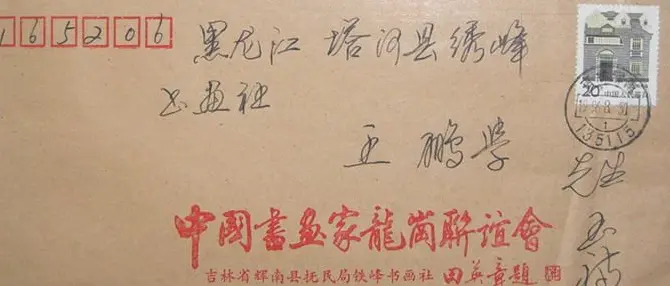 165206
黑龙江 塔河县绣峰
书画社
王 鹏学
先生
中國書畫家龍崗聯誼會
吉林省辉南县抚民局铁峰书画社 田英章題
20
中国人民邮政
135115